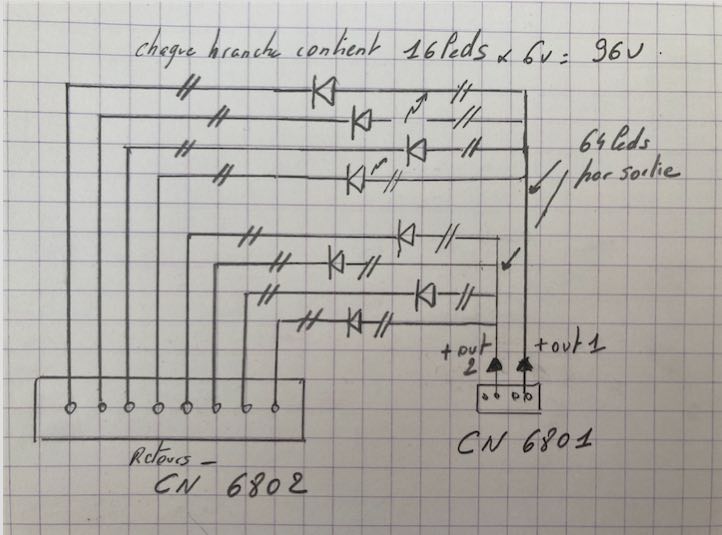 chaque branche contient 16 leds x 6v = 96v.
64 leds
par sortie
+ out
2
+ out 1
CN 6801
Retours -
CN 6802